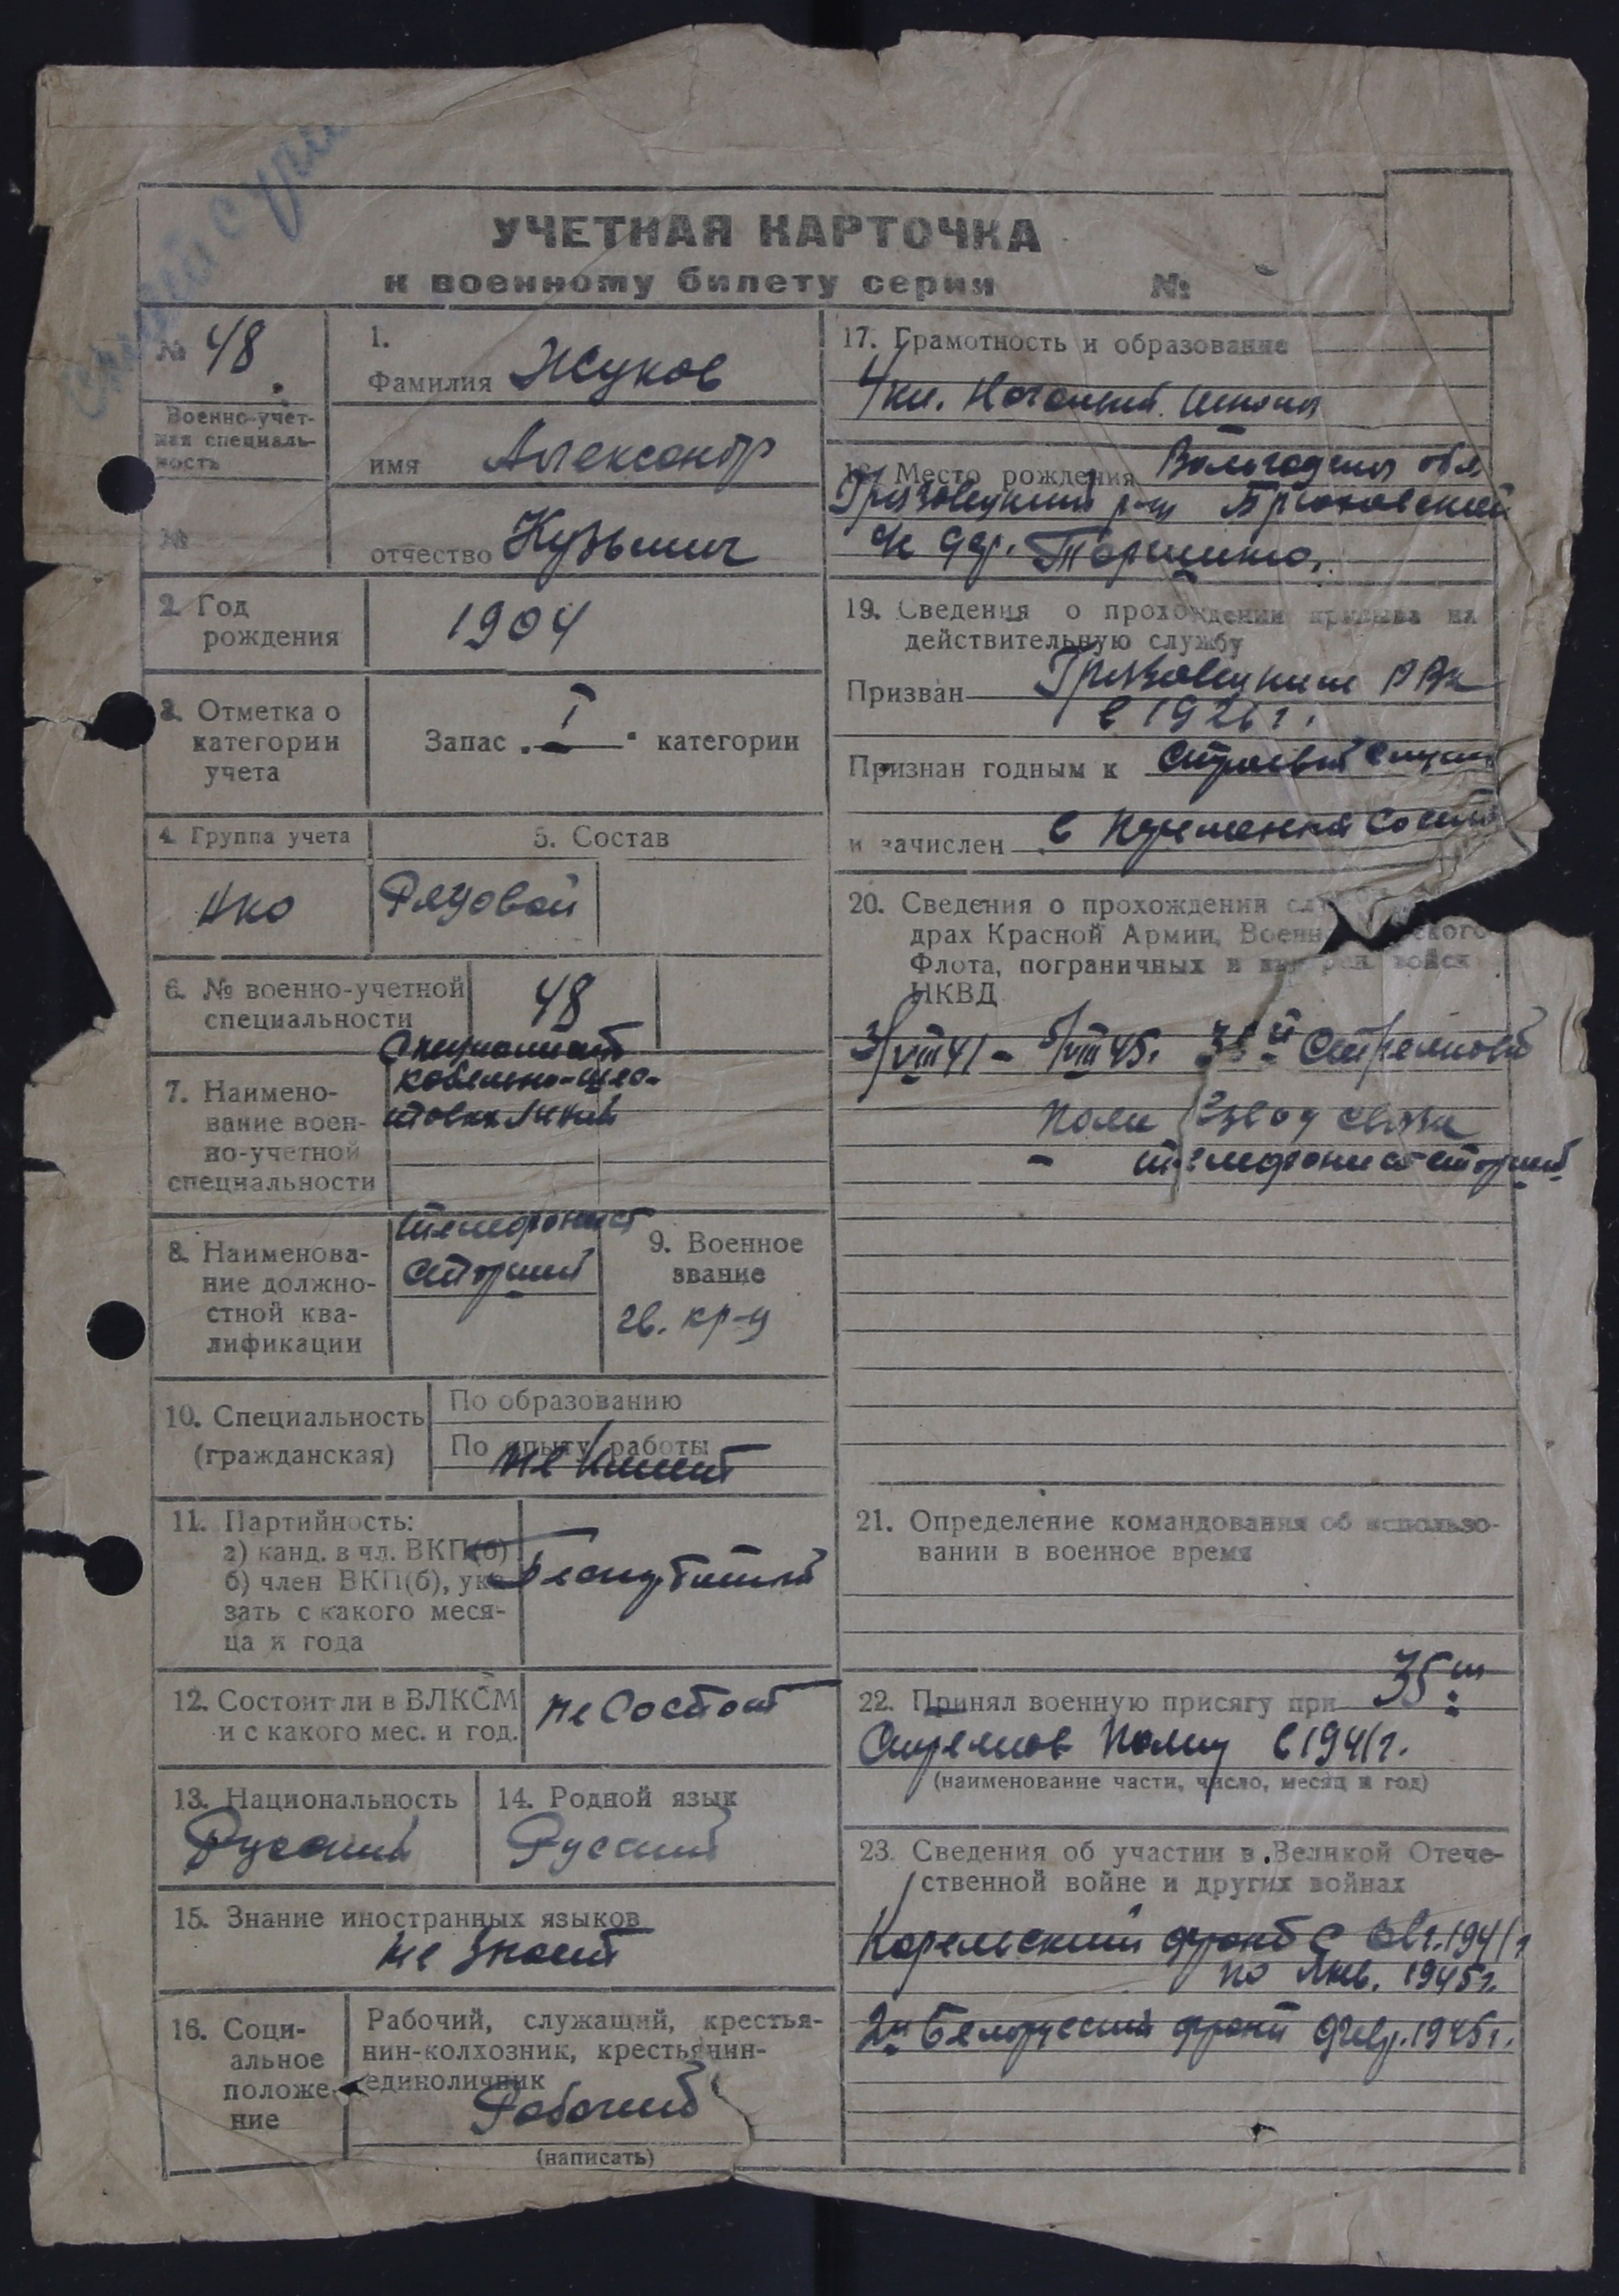 УЧЕТНАЯ КАРТОЧКА
к военному билету серии №
№ 48
Военно-учет-
ная специаль-
ность
№
1.
Фамилия Жуков
имя Александр
отчество Кузьмич
2. Год
рождения
1904
3. Отметка о
категории
учета
Запас I категории
4. Группа учета
5. Состав
НКО
Рядовой
6. № военно-учетной
специальности
48
7. Наимено-
вание воен-
но-учетной
специальности
Специалист
кабельно-шес-
товых линий
8. Наименова-
ние должно-
стной ква-
лификации
телефонист
старший
9. Военное
звание
гв. кр-ц
10. Специальность
(гражданская)
По образованию
По опыту работы
не имеет
11. Партийность:
а) канд. в чл. ВКП(б)
б) член ВКП(б), ука-
зать с какого меся-
ца и года
Беспартийный
12. Состоит ли в ВЛКСМ
и с какого мес. и год.
не состоит
13. Национальность
Русский
14. Родной язык
Русский
15. Знание иностранных языков
не знает
16. Соци-
альное
положе-
ние
Рабочий, служащий, крестья-
нин-колхозник, крестьянин-
единоличник
Рабочий
(написать)
17. Грамотность и образование
4 кл. Начальной школы
18. Место рождения Вологодская обл
Грязовецкий р-н
дер.
19. Сведения о прохождении призыва на
действительную службу
Призван Грязовецким РВК
в 1926 г.
Признан годным к строевой службе
и зачислен в состав
20. Сведения о прохождении
драх Красной Армии, Военно ского
Флота, пограничных и войск
НКВД
VIII 41 - VIII 45г. 35й Стрелковый
полк взвод связи
- телефонист старший
21. Определение командования об использо-
вании в военное время
22. Принял военную присягу при 35м
Стрелков полку в 1941г.
(наименование части, число, месяц и год)
23. Сведения об участии в Великой Отече-
ственной войне и других войнах
Карельский фронт с Авг. 1941г
по Янв. 1945г.
2й Белорусский фронт февр. 1945г.